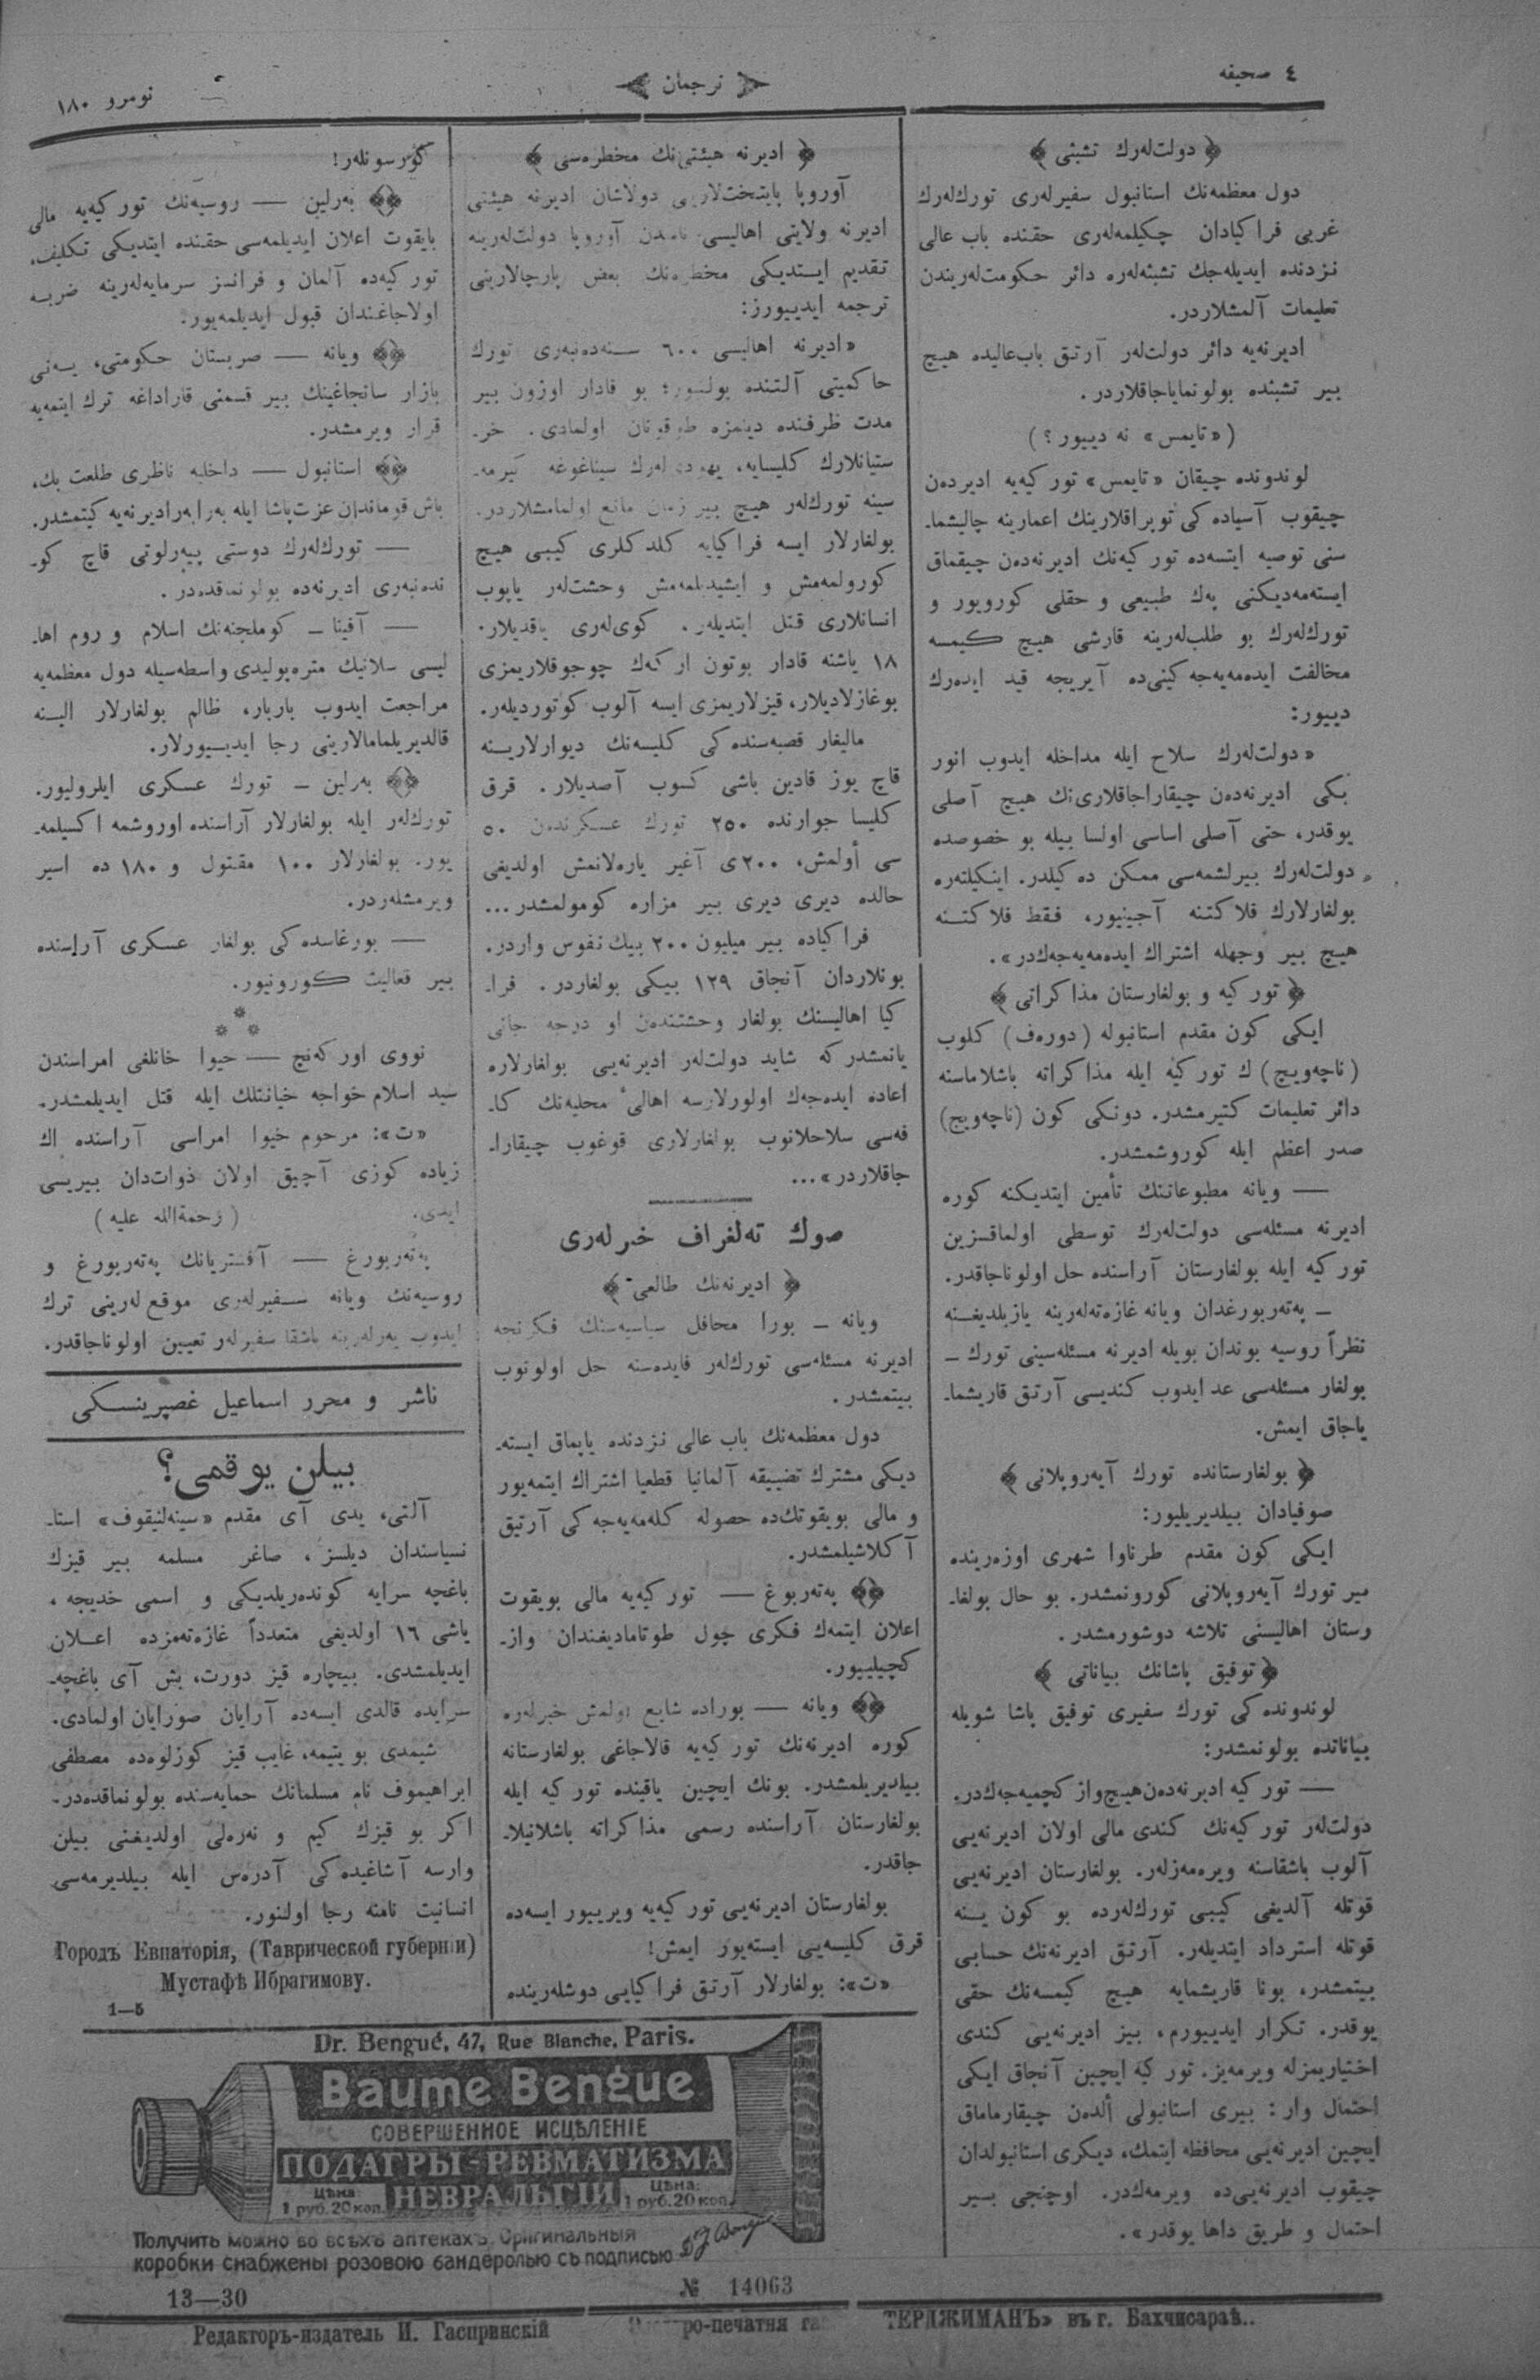 ٤ صحیفه
ترجمان
نومرو ۱۸۰
﴿ دولت‌لەرك تشبثی ﴾
دول معظمەنك استانبول سفیرلەری تورك‌لەرك
غربی فراکیادان چکیلمەلەری حقنده باب عالی
نزدنده ایدیله‌جك تشبثلەره دائر حکومت‌لەریندن
تعلیمات آلمشلاردر.
ادیرنەیه دائر دولت‌لەر آرتق باب‌عالیده هیچ
بیر تشبثده بولونمایاجاقلاردر.
( «تایمس» نه دییور؟ )
لوندونده چیقان «تایمس» تورکیەیه ادیردەن
چیقوب آسیاده‌کی توپراقلارینك اعمارینه چالیشما-
سنی توصیه ایتسەده تورکیەنك ادیرنەدەن چیقماق
ایستەمەدیکنی پەك طبیعی و حقلی کورویور و
تورك‌لەرك بو طلب‌لەرینه قارشی هیچ کیمسه
مخالفت ایدەمەیەجەکینی‌ده آیریجه قید ایدەرك
دییور:
«دولت‌لەرك سلاح ایله مداخله ایدوب انور
بکی ادیرنەدەن چیقاراجاقلاری‌نك هیچ آصلی
یوقدر، حتی آصلی اساسی اولسا بیله بو خصوصده
دولت‌لەرك بیرلشمەسی ممکن دەکیلدر. اینکیلتەره
بولغارلارك فلاکتنه آجینیور، فقط فلاکتنه
هیچ بیر وجهله اشتراك ایدەمەیەجەکدر».
﴿ تورکیه و بولغارستان مذاکراتی ﴾
ایکی کون مقدم استانبوله (دورەف) کلوب
(ناچەویچ) ك تورکیه ایله مذاکراته باشلاماسنه
دائر تعلیمات کتیرمشدر. دونکی کون (ناچەویچ)
صدر اعظم ایله کوروشمشدر.
— ویانه مطبوعاتنك تأمین ایتدیکنه کوره
ادیرنه مسئلەسی دولت‌لەرك توسطی اولماقسزین
تورکیه ایله بولغارستان آراسنده حل اولوناجاقدر.
— پەتەربورغدان ویانه غازەتەلەرینه یازیلدیغنه
نظراً روسیه بوندان بویله ادیرنه مسئلەسینی تورك —
بولغار مسئلەسی عد ایدوب کندیسی آرتق قاریشما-
یاجاق ایمش.
﴿ بولغارستانده تورك آیەروپلانی ﴾
صوفیادان بیلدیریلیور:
ایکی کون مقدم طرناوا شهری اوزەرینده
بیر تورك آیەروپلانی کورونمشدر. بو حال بولغا-
رستان اهالیسنی تلاشه دوشورمشدر.
﴿ توفیق پاشانك بیاناتی ﴾
لوندونده‌کی تورك سفیری توفیق پاشا شویله
بیاناتده بولونمشدر:
— تورکیه ادیرنەدەن هیچ واز کچمیەجەکدر.
دولت‌لەر تورکیەنك کندی مالی اولان ادیرنەیی
آلوب باشقاسنه ویرەمەزلەر. بولغارستان ادیرنەیی
قوتله آلدیغی کیبی تورك‌لەرده بو کون ینه
قوتله استرداد ایتدیلەر. آرتق ادیرنەنك حسابی
بیتمشدر، بونا قاریشمایه هیچ کیمسەنك حقی
یوقدر. تکرار ایدییورم، بیز ادیرنەیی کندی
اختیاریمزله ویرمەیز. تورکیه ایچین آنجاق ایکی
احتمال وار: بیری استانبولی ألدەن چیقارماماق
ایچین ادیرنەیی محافظه ایتمك، دیکری استانبولدان
چیقوب ادیرنەیی‌ده ویرمەکدر. اوچنجی بیر
احتمال و طریق داها یوقدر».
﴿ ادیرنه هیئتی‌نك مخطرەسی ﴾
آوروپا پایتخت‌لارینی دولاشان ادیرنه هیئتی
ادیرنه ولایتی اهالیسی نامندن آوروپا دولت‌لەرینه
تقدیم ایستدیکی مخطرەنك بعض پارچالارینی
ترجمه ایدییورز:
«ادیرنه اهالیسی ٦٠٠ سنەدەنبەری تورك
حاکمیتی آلتنده بولنیور؛ بو قادار اوزون بیر
مدت ظرفنده دینمزه طوقونان اولمادی. خر-
ستیانلارك کلیسایه، یهودیلەرك سیناغوغه کیرمە-
سینه تورك‌لەر هیچ بیر زمان مانع اولمامشلاردر.
بولغارلار ایسه فراکیایه کلدکلری کیبی هیچ
کورولمەمش و ایشیدیلمەمش وحشت‌لەر یاپوب
انسانلاری قتل ایتدیلەر. کوی‌لەری یاقدیلار.
۱۸ یاشنه قادار بوتون ارکەك چوجوقلاریمزی
بوغازلادیلار، قیزلاریمزی ایسه آلوب کوتوردیلەر.
مالیغار قصبەسنده‌کی کلیسەنك دیوارلارینه
قاچ یوز قادین باشی کسوب آصدیلار. قرق
کلیسا جوارنده ۲۵۰ تورك عسکرندەن ۵۰
سی أولمش، ۲۰۰ی آغیر یارەلانمش اولدیغی
حالده دیری دیری بیر مزاره کومولمشدر...
فراکیاده بیر میلیون ۲۰۰ بیك نفوس واردر.
بونلاردان آنجاق ۱۲۹ بیکی بولغاردر. فرا-
کیا اهالیسنك بولغار وحشتندەن او درجه جانی
یانمشدرکه شاید دولت‌لەر ادیرنەیی بولغارلاره
اعاده ایدەجەك اولورلارسه اهالیٔ محلیەنك کا-
فەسی سلاحلانوب بولغارلاری قوغوب چیقارا-
جاقلاردر»...
صوك تەلغراف خبرلەری
﴿ ادیرنەنك طالعی ﴾
ویانه — بورا محافل سیاسیەسنك فکرنجه
ادیرنه مسئلەسی تورك‌لەر فایدەسنه حل اولونوب
بیتمشدر.
دول معظمەنك باب عالی نزدنده یاپماق ایستە-
دیکی مشترك تضییقه آلمانیا قطعیا اشتراك ایتمەیور
و مالی بویقوتك‌ده حصوله کلەمەیەجەکی آرتیق
آکلاشیلمشدر.
پەتەربوغ — تورکیەیه مالی بویقوت
اعلان ایتمەك فکری چول طوتامادیغندان واز-
کچیلییور.
ویانه — بوراده شایع اولمش خبرلەره
کوره ادیرنەنك تورکیەیه قالاجاغی بولغارستانه
بیلدیریلمشدر. بونك ایچین یاقینده تورکیه ایله
بولغارستان آراسنده رسمی مذاکراته باشلانیلا-
جاقدر.
بولغارستان ادیرنەیی تورکیەیه ویرییور ایسەده
قرق کلیسەیی ایستەیور ایمش!
«ت»: بولغارلار آرتق فراکیایی دوشلەرینده
کورسونلەر!
بەرلین — روسیەنك تورکیەیه مالی
بایقوت اعلان ایدیلمەسی حقنده ایتدیکی تکلیف،
تورکیەده آلمان و فرانسز سرمایەلەرینه ضربه
اولاجاغندان قبول ایدیلمەیور.
ویانه — صربستان حکومتی، یەنی
بازار سانجاغینك بیر قسمنی قاراداغه ترك ایتمەیه
قرار ویرمشدر.
استانبول — داخلیه ناظری طلعت بك،
باش قوماندان عزت پاشا ایله بەرابەر ادیرنەیه کیتمشدر.
— تورك‌لەرك دوستی پیەرلوتی قاچ کو-
ندەنبەری ادیرنەده بولونمقدەدر.
— آفینا — کوملجنەنك اسلام و روم اها-
لیسی سلانیك متره‌پولیدی واسطەسیله دول معظمەیه
مراجعت ایدوب باربار، ظالم بولغارلار الینه
قالدیریلمامالارینی رجا ایدیییورلار.
بەرلین — تورك عسکری ایلرولیور.
تورك‌لەر ایله بولغارلار آراسنده اوروشمه اکسیلمە-
یور. بولغارلار ۱۰۰ مقتول و ۱۸۰ ده اسیر
ویرمشلەردر.
— بورغاسده‌کی بولغار عسکری آراسنده
بیر فعالیت کورونیور.
* * *
نووی اورکەنج — خیوا خانلغی امراسندن
سید اسلام خواجه خیانتلك ایله قتل ایدیلمشدر.
«ت»: مرحوم خیوا امراسی آراسنده اك
زیاده کوزی آچیق اولان ذوات‌دان بیریسی
ایدی. (رحمةالله علیه)
پەتەربورغ — آفستریانك پەتەربورغ و
روسیەنك ویانه سفیرلەری موقع‌لەرینی ترك
ایدوب یەرلەرینه باشقا سفیرلەر تعیین اولوناجاقدر.
ناشر و محرر اسماعیل غصپرینسکی
بیلن یوقمی؟
آلتی، یدی آی مقدم «سینەلنیقوف» استا-
نسیاسندان دیلسز، صاغر مسلمه بیر قیزك
باغچه سرایه کوندەریلدیکی و اسمی خدیجه،
یاشی ۱٦ اولدیغی متعدداً غازەتەمزده اعلان
ایدیلمشدی. بیچاره قیز دورت، بش آی باغچە-
سرایده قالدی ایسەده آرایان صورایان اولمادی.
شیمدی بو یتیمه، غایب قیز کوزلوەده مصطفی
ابراهیموف نام مسلمانك حمایەسنده بولونماقدەدر.
اکر بو قیزك کیم و نەرەلی اولدیغنی بیلن
وارسه آشاغیده‌کی آدرەس ایله بیلدیرمەسی
انسانیت نامنه رجا اولنور.
Городъ Евпаторія, (Таврической губерніи)
Мустафѣ Ибрагимову.
1—5
Dr. Bengué, 47, Rue Blanche, Paris.
Baume Bengue
СОВЕРШЕННОЕ ИСЦѢЛЕНІЕ
ПОДАГРЫ-РЕВМАТИЗМА
Цѣна: 1 руб. 20 коп. НЕВРАЛЬГІИ Цѣна: 1 руб. 20 коп.
Получить можно во всѣхъ аптекахъ. Оригинальныя
коробки снабжены розовою бандеролью съ подписью Dr Bengué
13—30
№ 14063
Редакторъ-издатель И. Гаспринскій
ро-печатня га ТЕРДЖИМАНЪ» въ г. Бахчисараѣ..